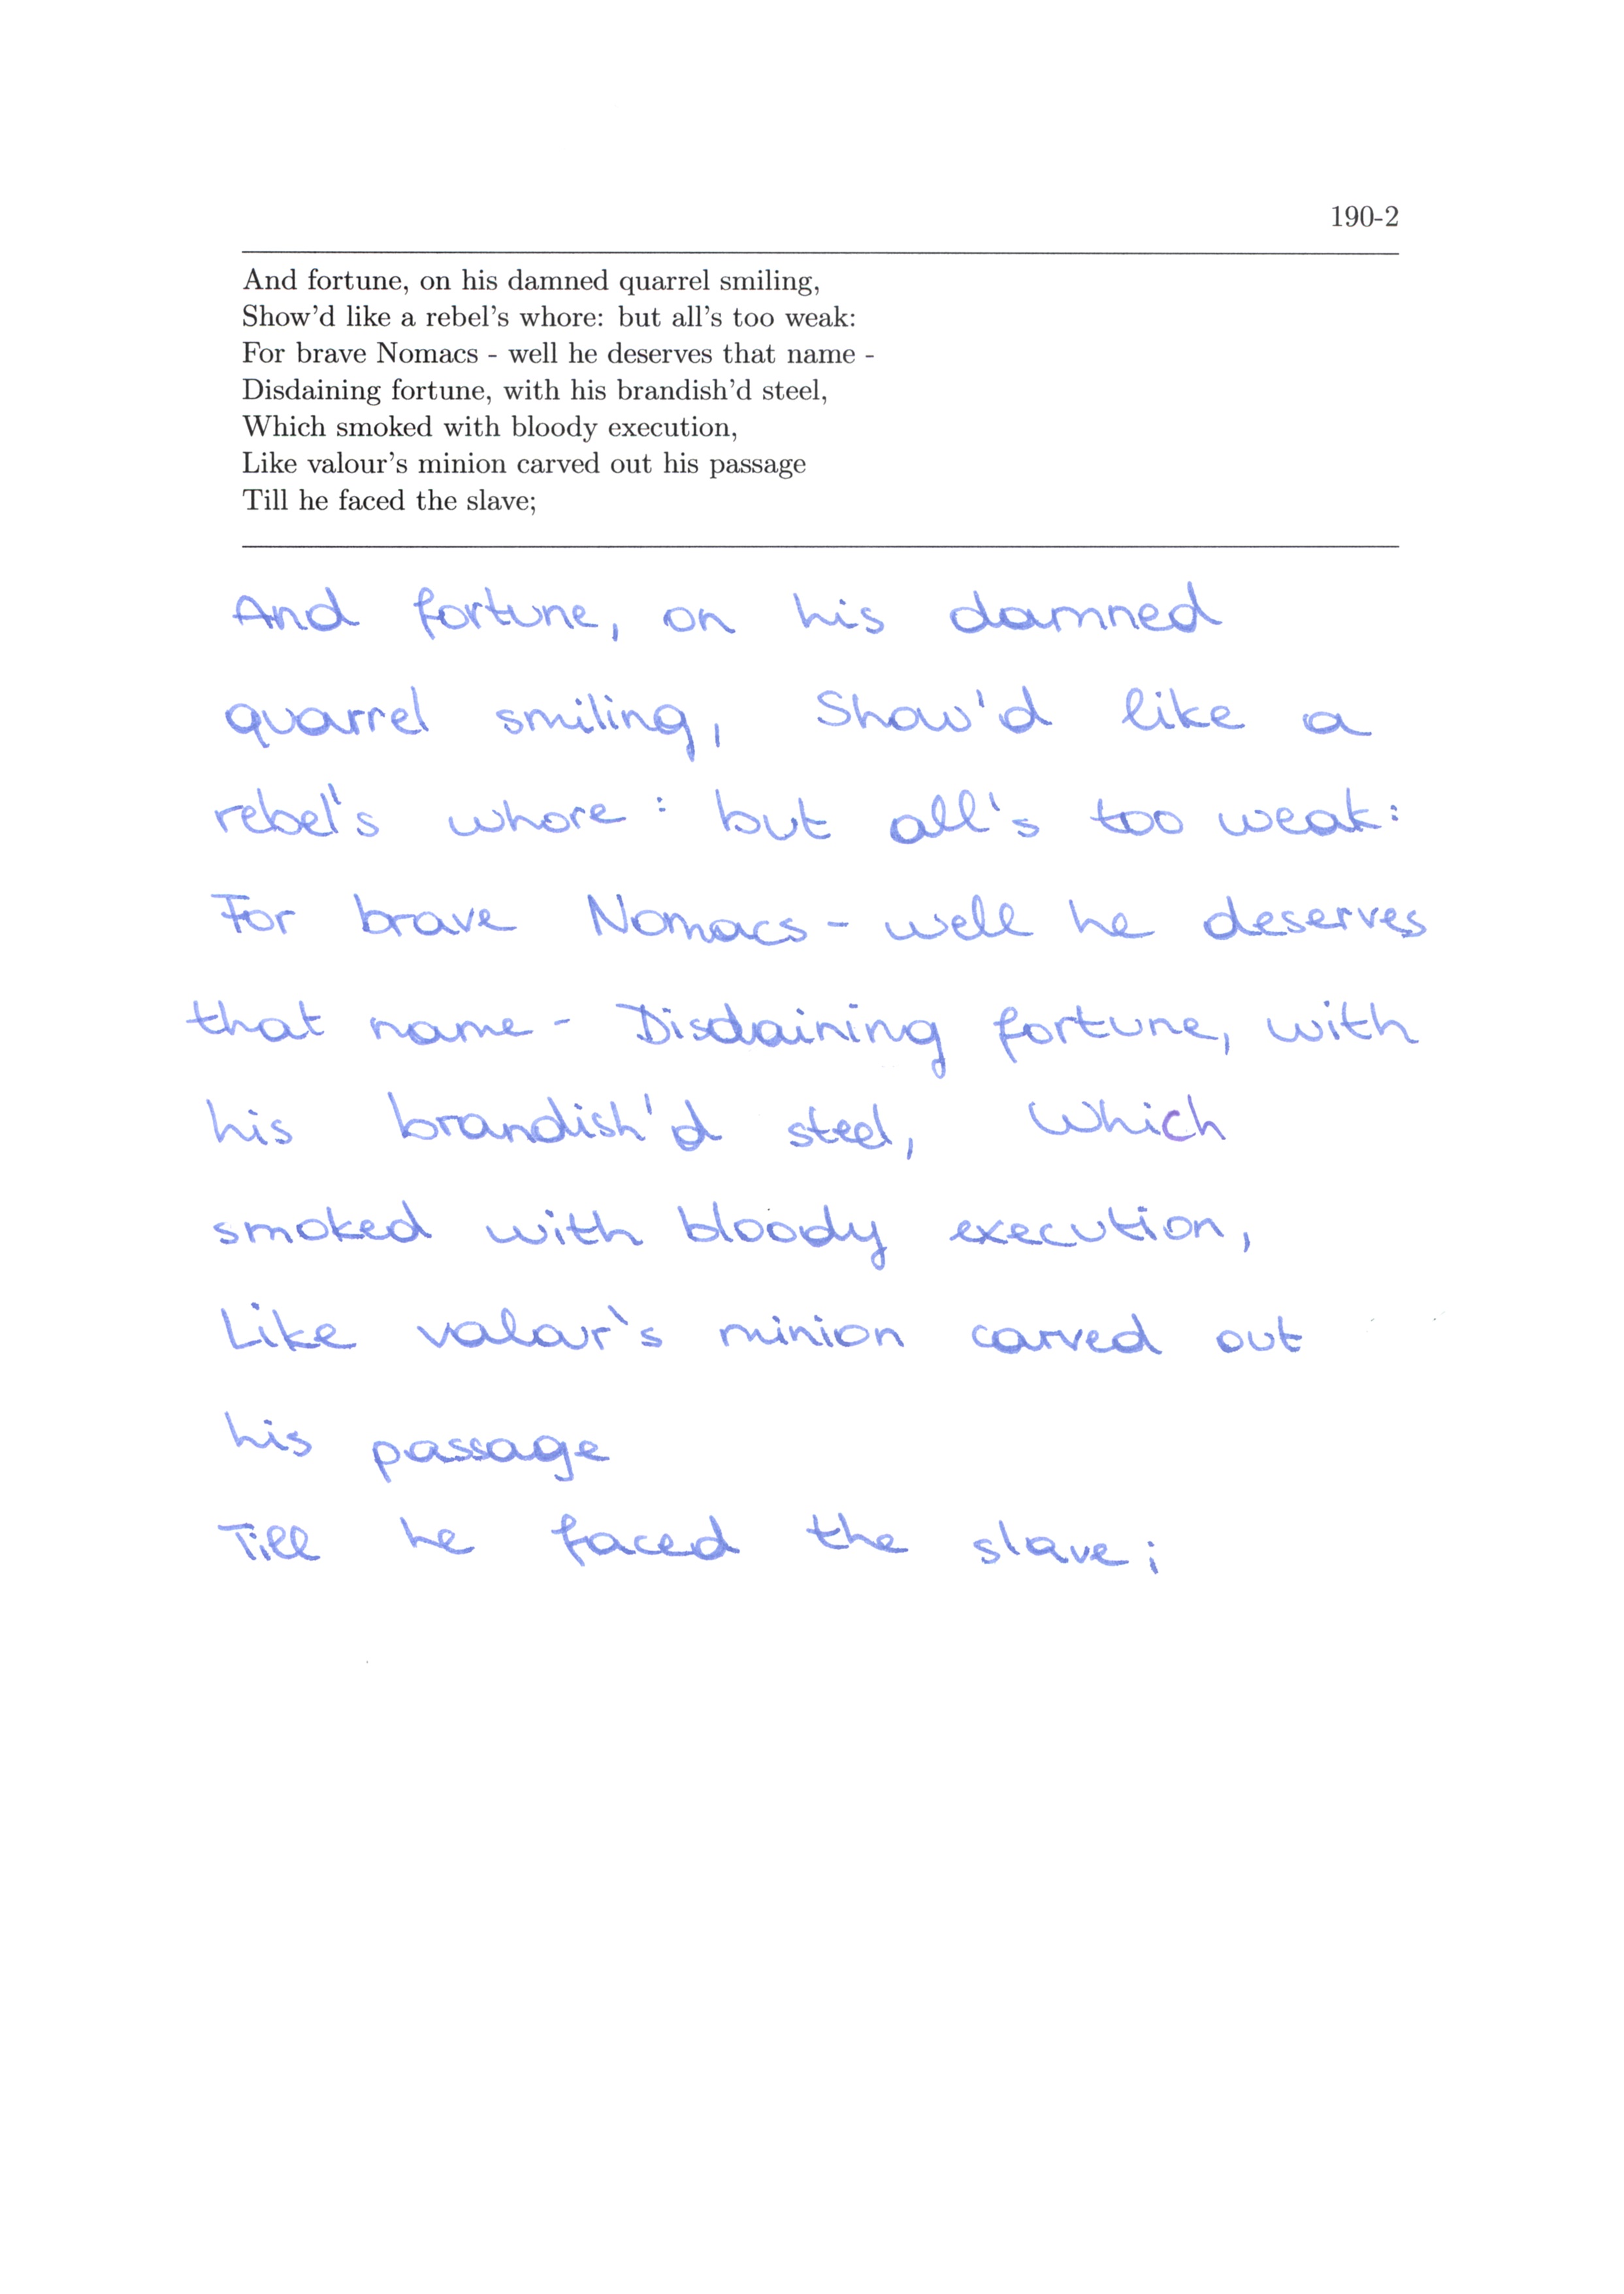 190-2
And fortune, on his damned quarrel smiling,
Show'd like a rebel's whore: but all's too weak:
For brave Nomacs - well he deserves that name -
Disdaining fortune, with his brandish'd steel,
Which smoked with bloody execution,
Like valour's minion carved out his passage
Till he faced the slave;
And fortune, on his damned
quarrel smiling, Show'd like a
rebel's whore : but all's too weak:
For brave Nomacs - well he deserves
that name - Disdaining fortune, with
his brandish'd steel, Which
smoked with bloody execution,
Like valour's minion carved out
his passage
Till he faced the slave;